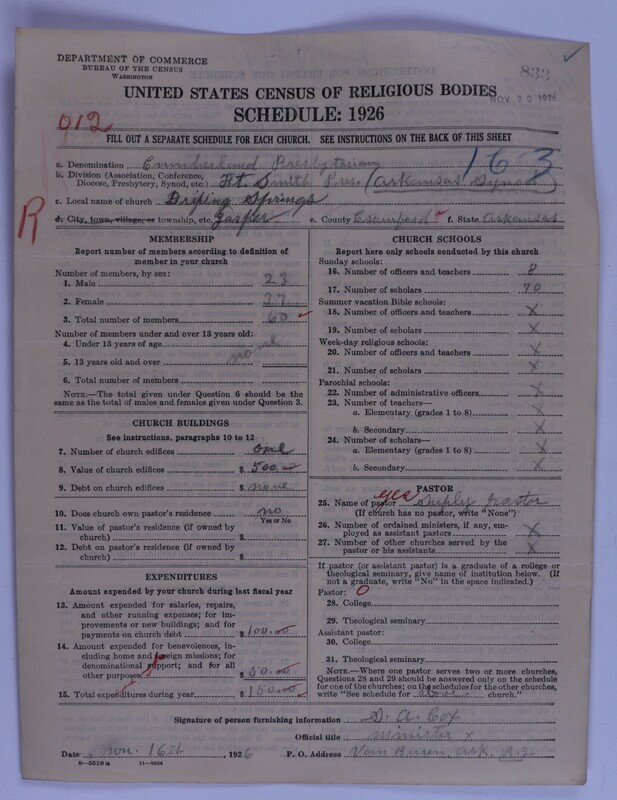 DEPARTMENT OF COMMERCE
BUREAU OF THE CENSUS
WASHINGTON
833
NOV 20 1926
UNITED STATES CENSUS OF RELIGIOUS BODIES
SCHEDULE: 1926
012
FILL OUT A SEPARATE SCHEDULE FOR EACH CHURCH. SEE INSTRUCTIONS ON THE BACK OF THIS SHEET
163
R
a. Denomination Cumberland Presbyterian
b. Division (Association, Conference, Diocese, Presbytery, Synod, etc.) Ft. Smith Pres. (Arkansas Synod)
c. Local name of church Driping Springs
d. City, town, village, or township, etc. Jasper e. County Crawford f. State Arkansas
MEMBERSHIP
Report number of members according to definition of
member in your church
Number of members, by sex:
1. Male 23
2. Female 37
3. Total number of members 60
Number of members under and over 13 years old:
4. Under 13 years of age
5. 13 years old and over
6. Total number of members
NOTE.—The total given under Question 6 should be
same as the total of males and females given under Question 3.
CHURCH BUILDINGS
See instructions, paragraphs 10 to 12
7. Number of church edifices one
8. Value of church edifices $ 500.00
9. Debt on church edifices $ none
10. Does church own pastor's residence? no
Yes or No
11. Value of pastor's residence (if owned by
church) $
12. Debt on pastor's residence (if owned by
church) $
EXPENDITURES
Amount expended by your church during last fiscal year
13. Amount expended for salaries, repairs,
and other running expenses; for im-
provements or new buildings; and for
payments on church debt $ 100.00
14. Amount expended for benevolences, in-
cluding home and foreign missions; for
denominational support; and for all
other purposes $ 50.00
15. Total expenditures during year $ 150.00
CHURCH SCHOOLS
Report here only schools conducted by this church
Sunday schools:
16. Number of officers and teachers 8
17. Number of scholars 70
Summer vacation Bible schools:
18. Number of officers and teachers X
19. Number of scholars X
Week-day religious schools:
20. Number of officers and teachers X
21. Number of scholars X
Parochial schools:
22. Number of administrative officers X
23. Number of teachers—
a. Elementary (grades 1 to 8) X
b. Secondary X
24. Number of scholars—
a. Elementary (grades 1 to 8) X
b. Secondary X
PASTOR
yes
25. Name of pastor Suply pastor
(If church has no pastor, write "None")
26. Number of ordained ministers, if any, em-
ployed as assistant pastors X
27. Number of other churches served by the
pastor or his assistants X
If pastor (or assistant pastor) is a graduate of a college or
theological seminary, give name of institution below. (If
not a graduate, write "No" in the space indicated.)
Pastor: 0
28. College
29. Theological seminary
Assistant pastor:
30. College
31. Theological seminary
NOTE.—Where one pastor serves two or more churches,
Questions 28 and 29 should be answered only on the schedule
for one of the churches; on the schedules for the other churches,
write "See schedule for above church."
Signature of person furnishing information D. A. Cox
Official title minister x
Date Nov. 16th, 1926 P. O. Address Van Buren Ark. R-2
8—5518 a 11—9024